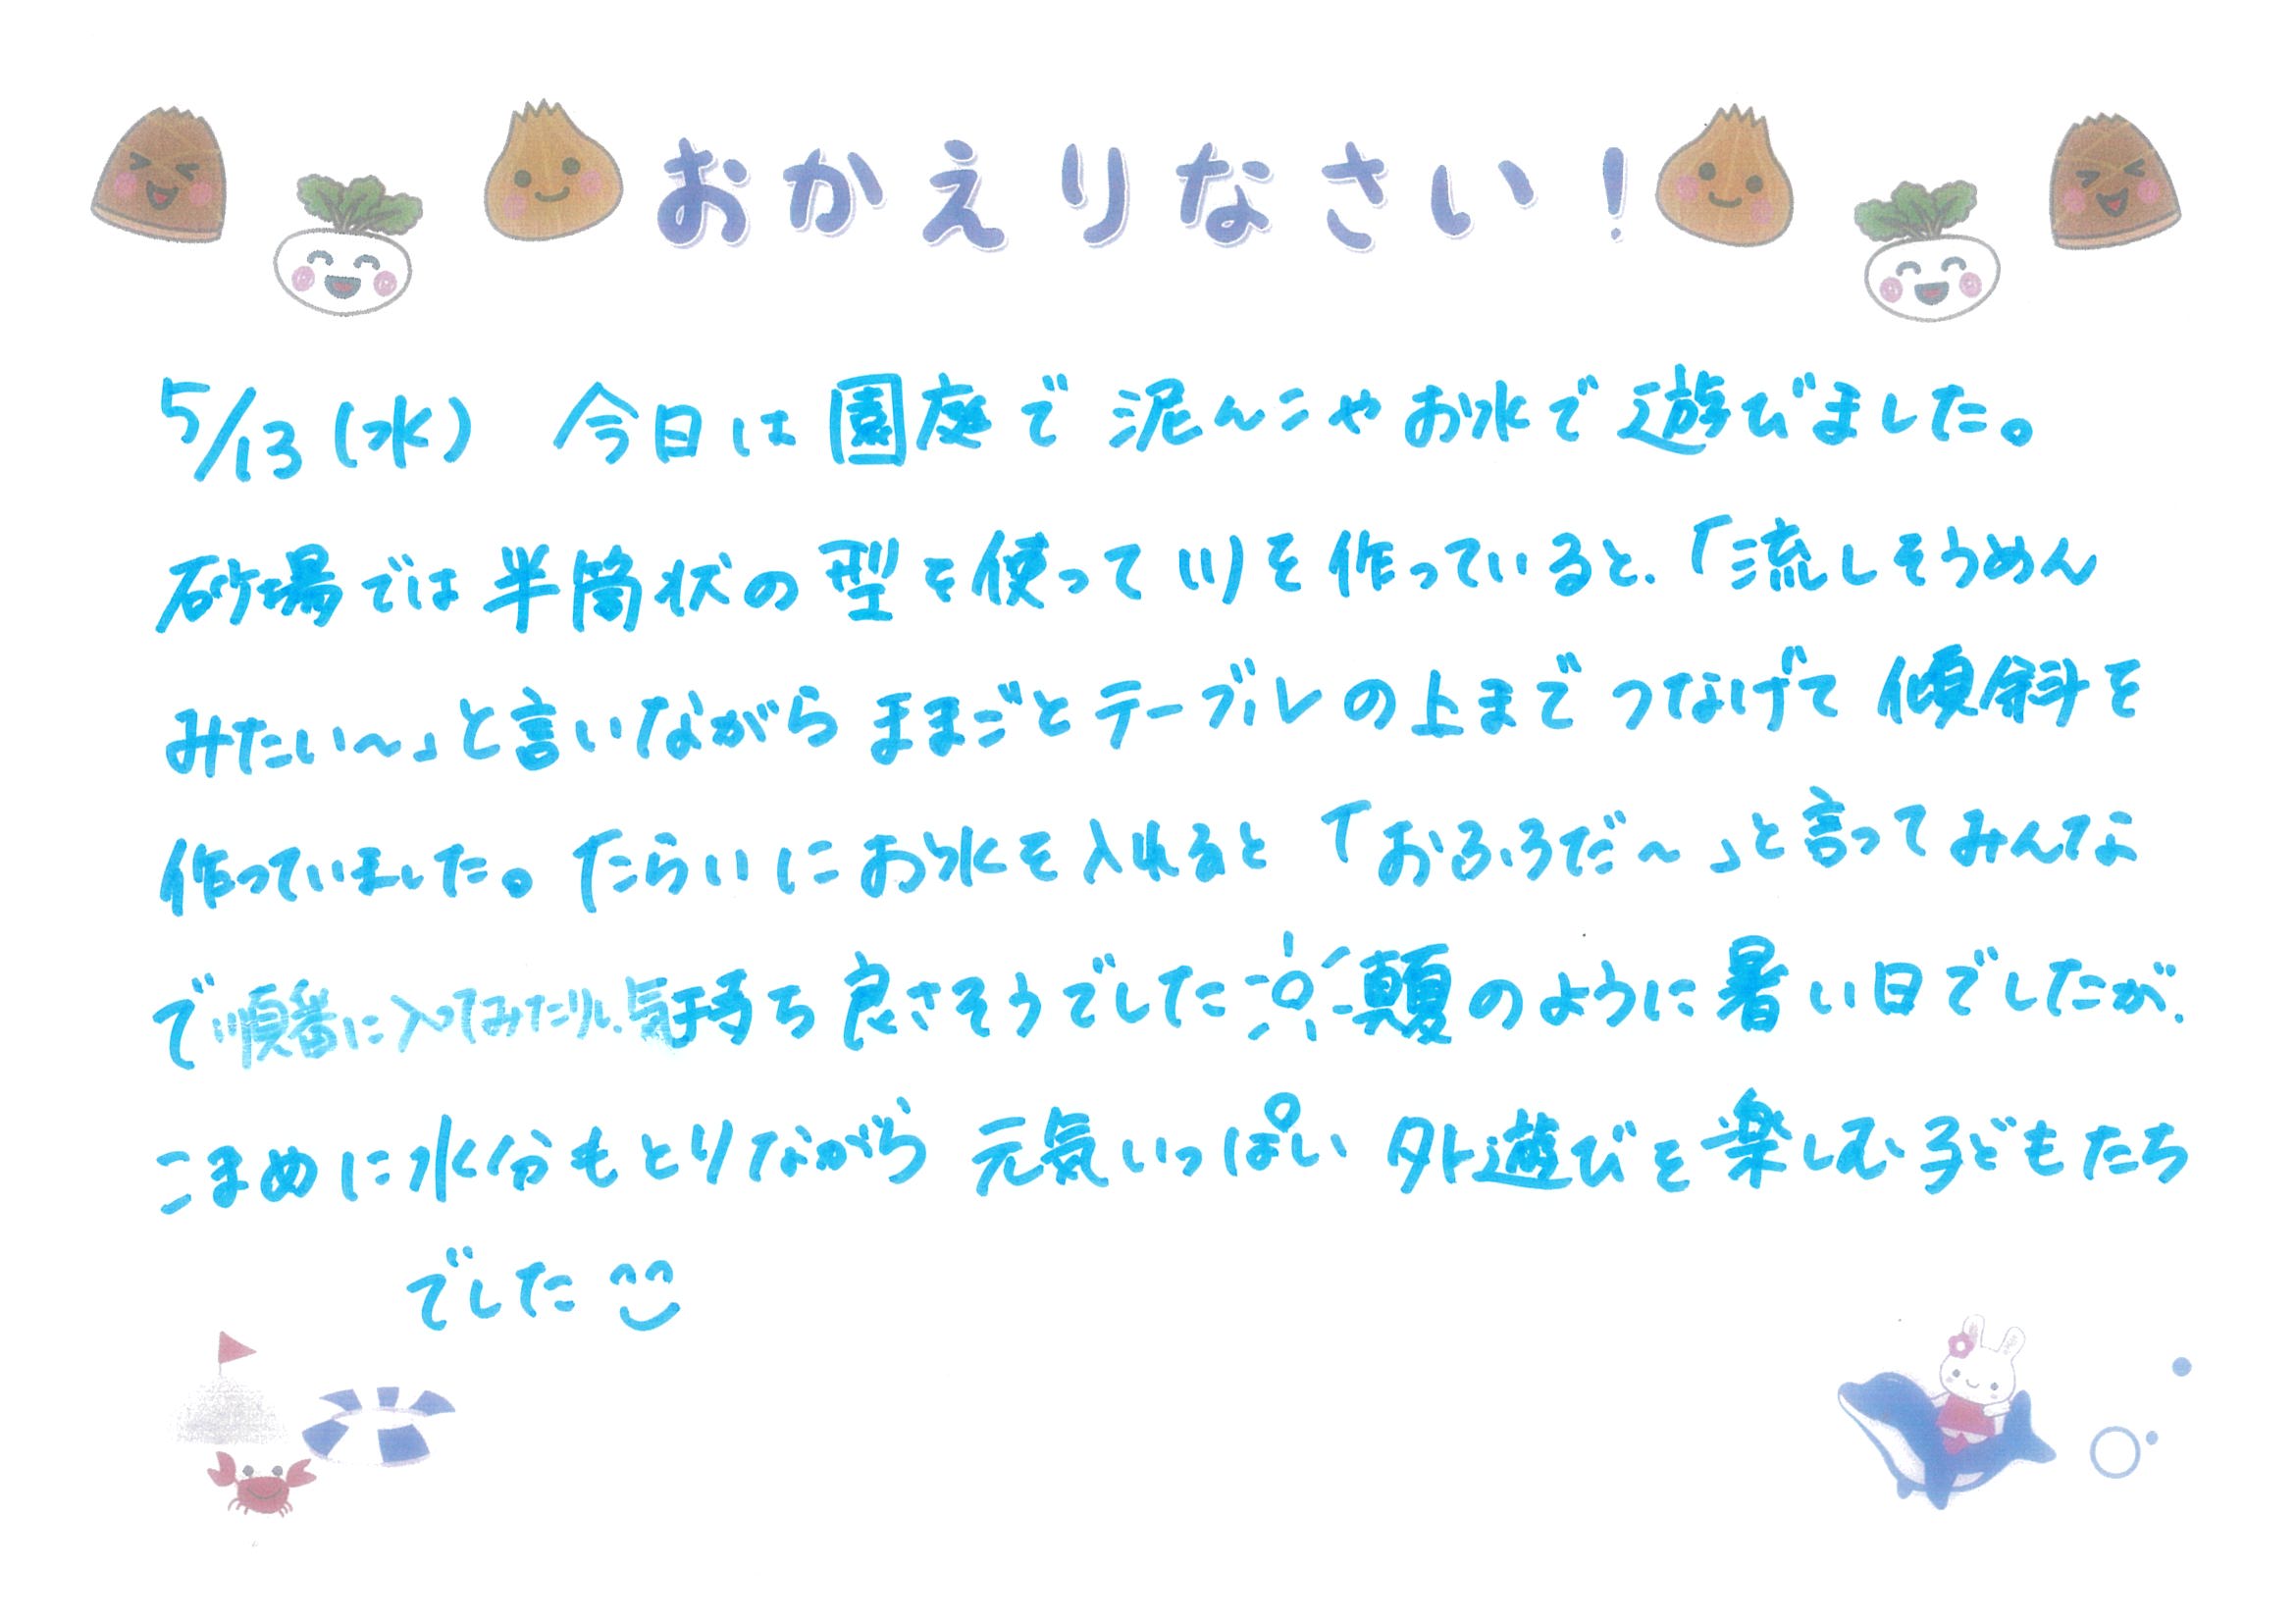 おかえりなさい!
5/13(水) 今日は園庭で泥んこやお水で遊びました。
砂場では半筒状の型を使って川を作っていると、「流しそうめん
みたい〜」と言いながらままごとテーブルの上までつなげて傾斜を
作っていました。たらいにお水を入れると「おふろだ〜」と言ってみんな
で順番に入ってみたりし、気持ち良さそうでした 真夏のように暑い日でしたが、
こまめに水分もとりながら元気いっぱい外遊びを楽しむ子どもたち
でした